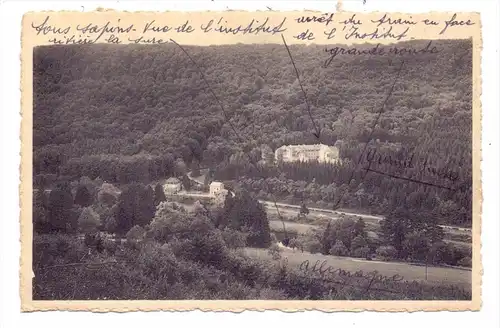 Tous sapins - Vue de l'institut
rivière la sure
arrêt du train en face
de l'Institut.
grande route
Grand Duché
Allemagne